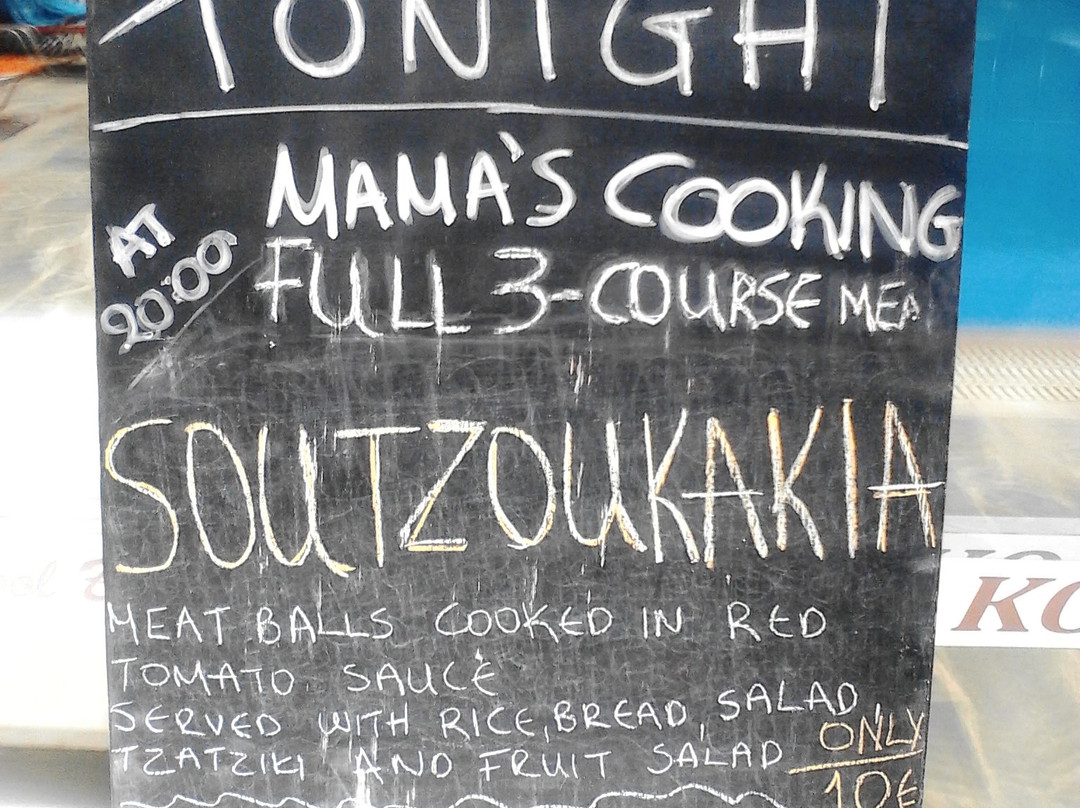 TONIGHT
MAMA'S COOKING
AT
20:00
FULL 3-COURSE MEA
SOUTZOUKAKIA
MEAT BALLS COOKED IN RED
TOMATO SAUCE
SERVED WITH RICE, BREAD, SALAD,
TZATZIKI AND FRUIT SALAD
ONLY
10€
KO